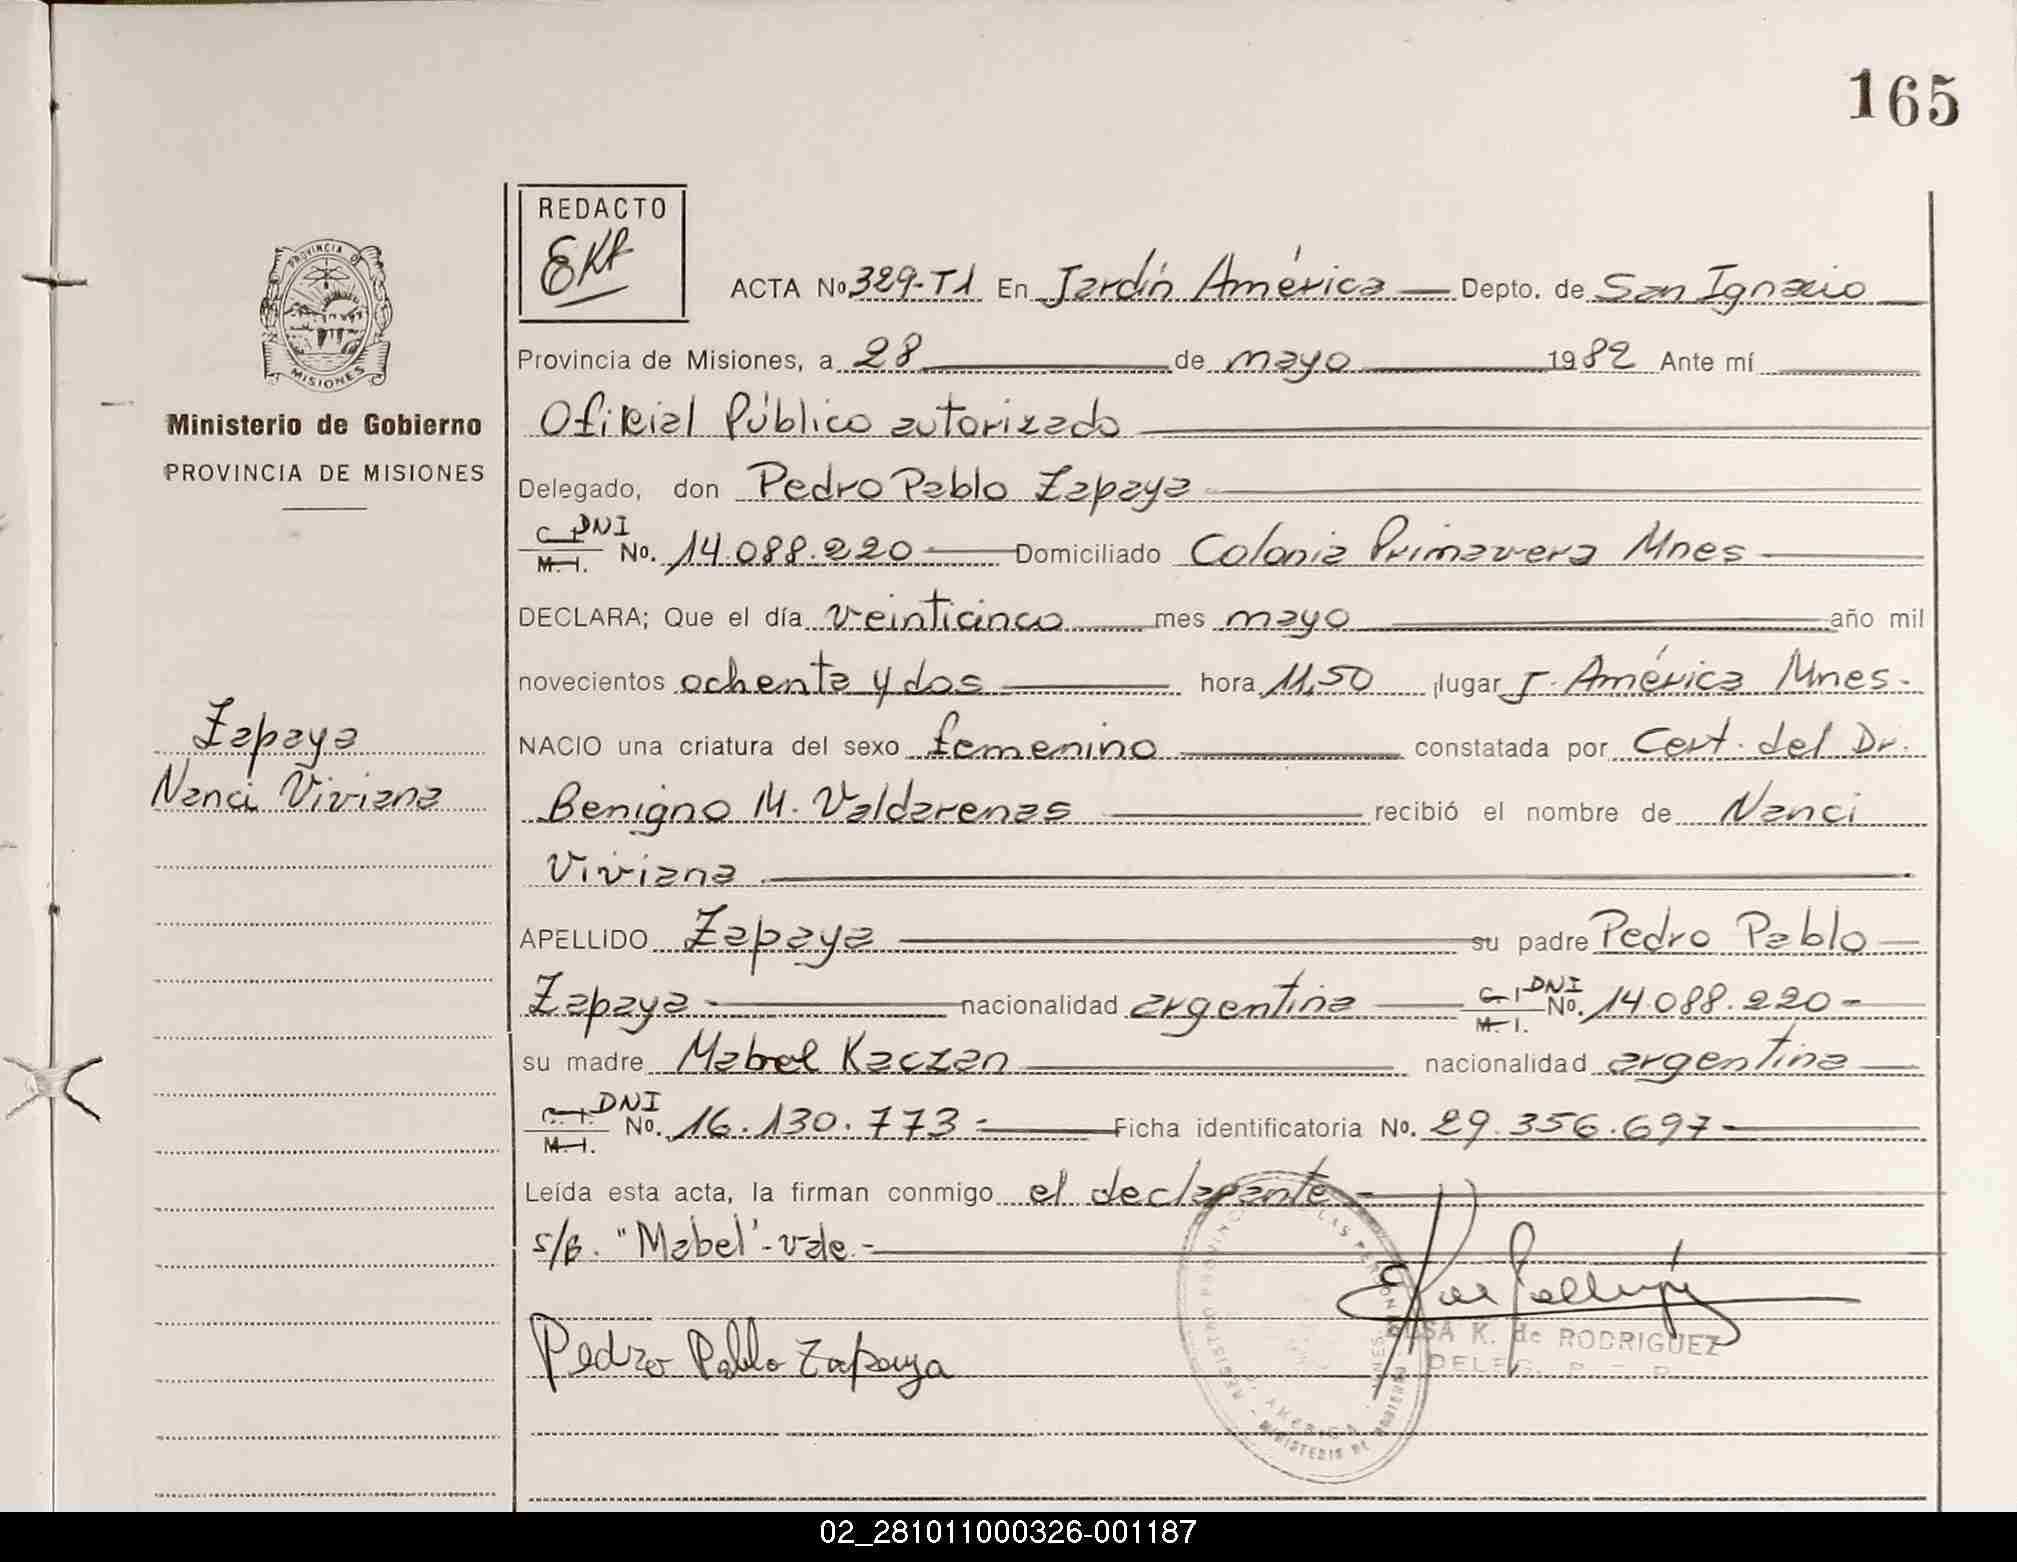 165
REDACTO
EKR
PROVINCIA DE
MISIONES
Ministerio de Gobierno
PROVINCIA DE MISIONES
Zapaya
Nanci Viviana
ACTA No 329-T1 En Jardín América Depto. de San Ignacio
Provincia de Misiones, a 28 de mayo 1982 Ante mí
Oficial Público autorizado
Delegado, don Pedro Pablo Zapaya
C. I. DNI
M. I. No. 14.088.220 Domiciliado Colonia Primavera Mnes
DECLARA; Que el día veinticinco mes mayo año mil
novecientos ochenta y dos hora 11,50 lugar J. América Mnes.
NACIO una criatura del sexo femenino constatada por Cert. del Dr.
Benigno M. Valdarenas recibió el nombre de Nanci
Viviana
APELLIDO Zapaya su padre Pedro Pablo
Zapaya nacionalidad argentina C. I. DNI M. I. No. 14.088.220
su madre Mabel Kaczan nacionalidad argentina
C. I. DNI
M. I. No. 16.130.773 Ficha identificatoria No. 29.356.697
Leída esta acta, la firman conmigo el declarante
s/B. "Mabel" - vale.
Pedro Pablo Zapaya
K. de RODRIGUEZ
DELEG.
MINISTERIO DE GOBIERNO
02_281011000326-001187